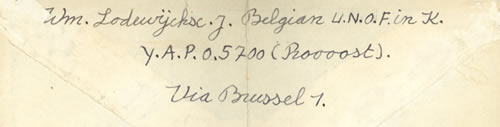 Wm. Lodewijcksc. J. Belgian U.N.O.F. in K.
Y.A.P.O.5700 (Roooost).
Via Brussel 1.